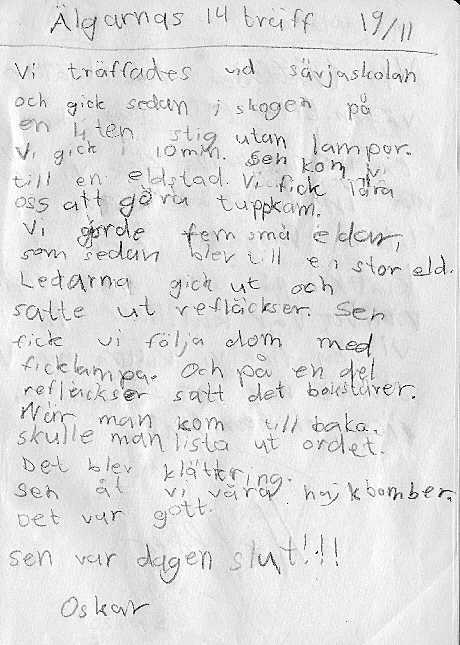 Älgarnas 14 träff 19/11
Vi träffades vid sävjaskolan
och gick sedan i skogen på
en liten stig utan lampor.
Vi gick i 10min. Sen kom vi
till en eldstad. Vi fick lära
oss att göra tuppkam.
Vi gjorde fem små eldar,
som sedan blev till en stor eld.
Ledarna gick ut och
satte ut refläckser. Sen
fick vi följa dom med
ficklampa. Och på en del
refläckser satt det bokstäver.
När man kom till baka.
skulle man lista ut ordet.
Det blev klättring.
Sen åt vi våra hajkbomber.
Det var gott.
sen var dagen slut!!!
Oskar